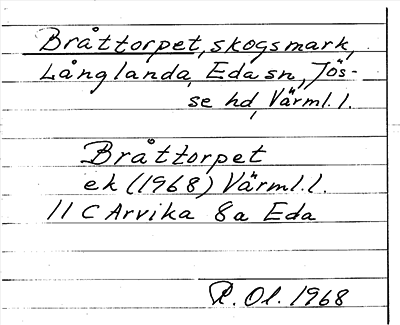 Bråttorpet, skogsmark,
Långlanda, Eda sn, Jös-
se hd, Värml. l.
Bråttorpet
ek (1968) Värml. l.
11 C Arvika 8a Eda
R. Ol. 1968